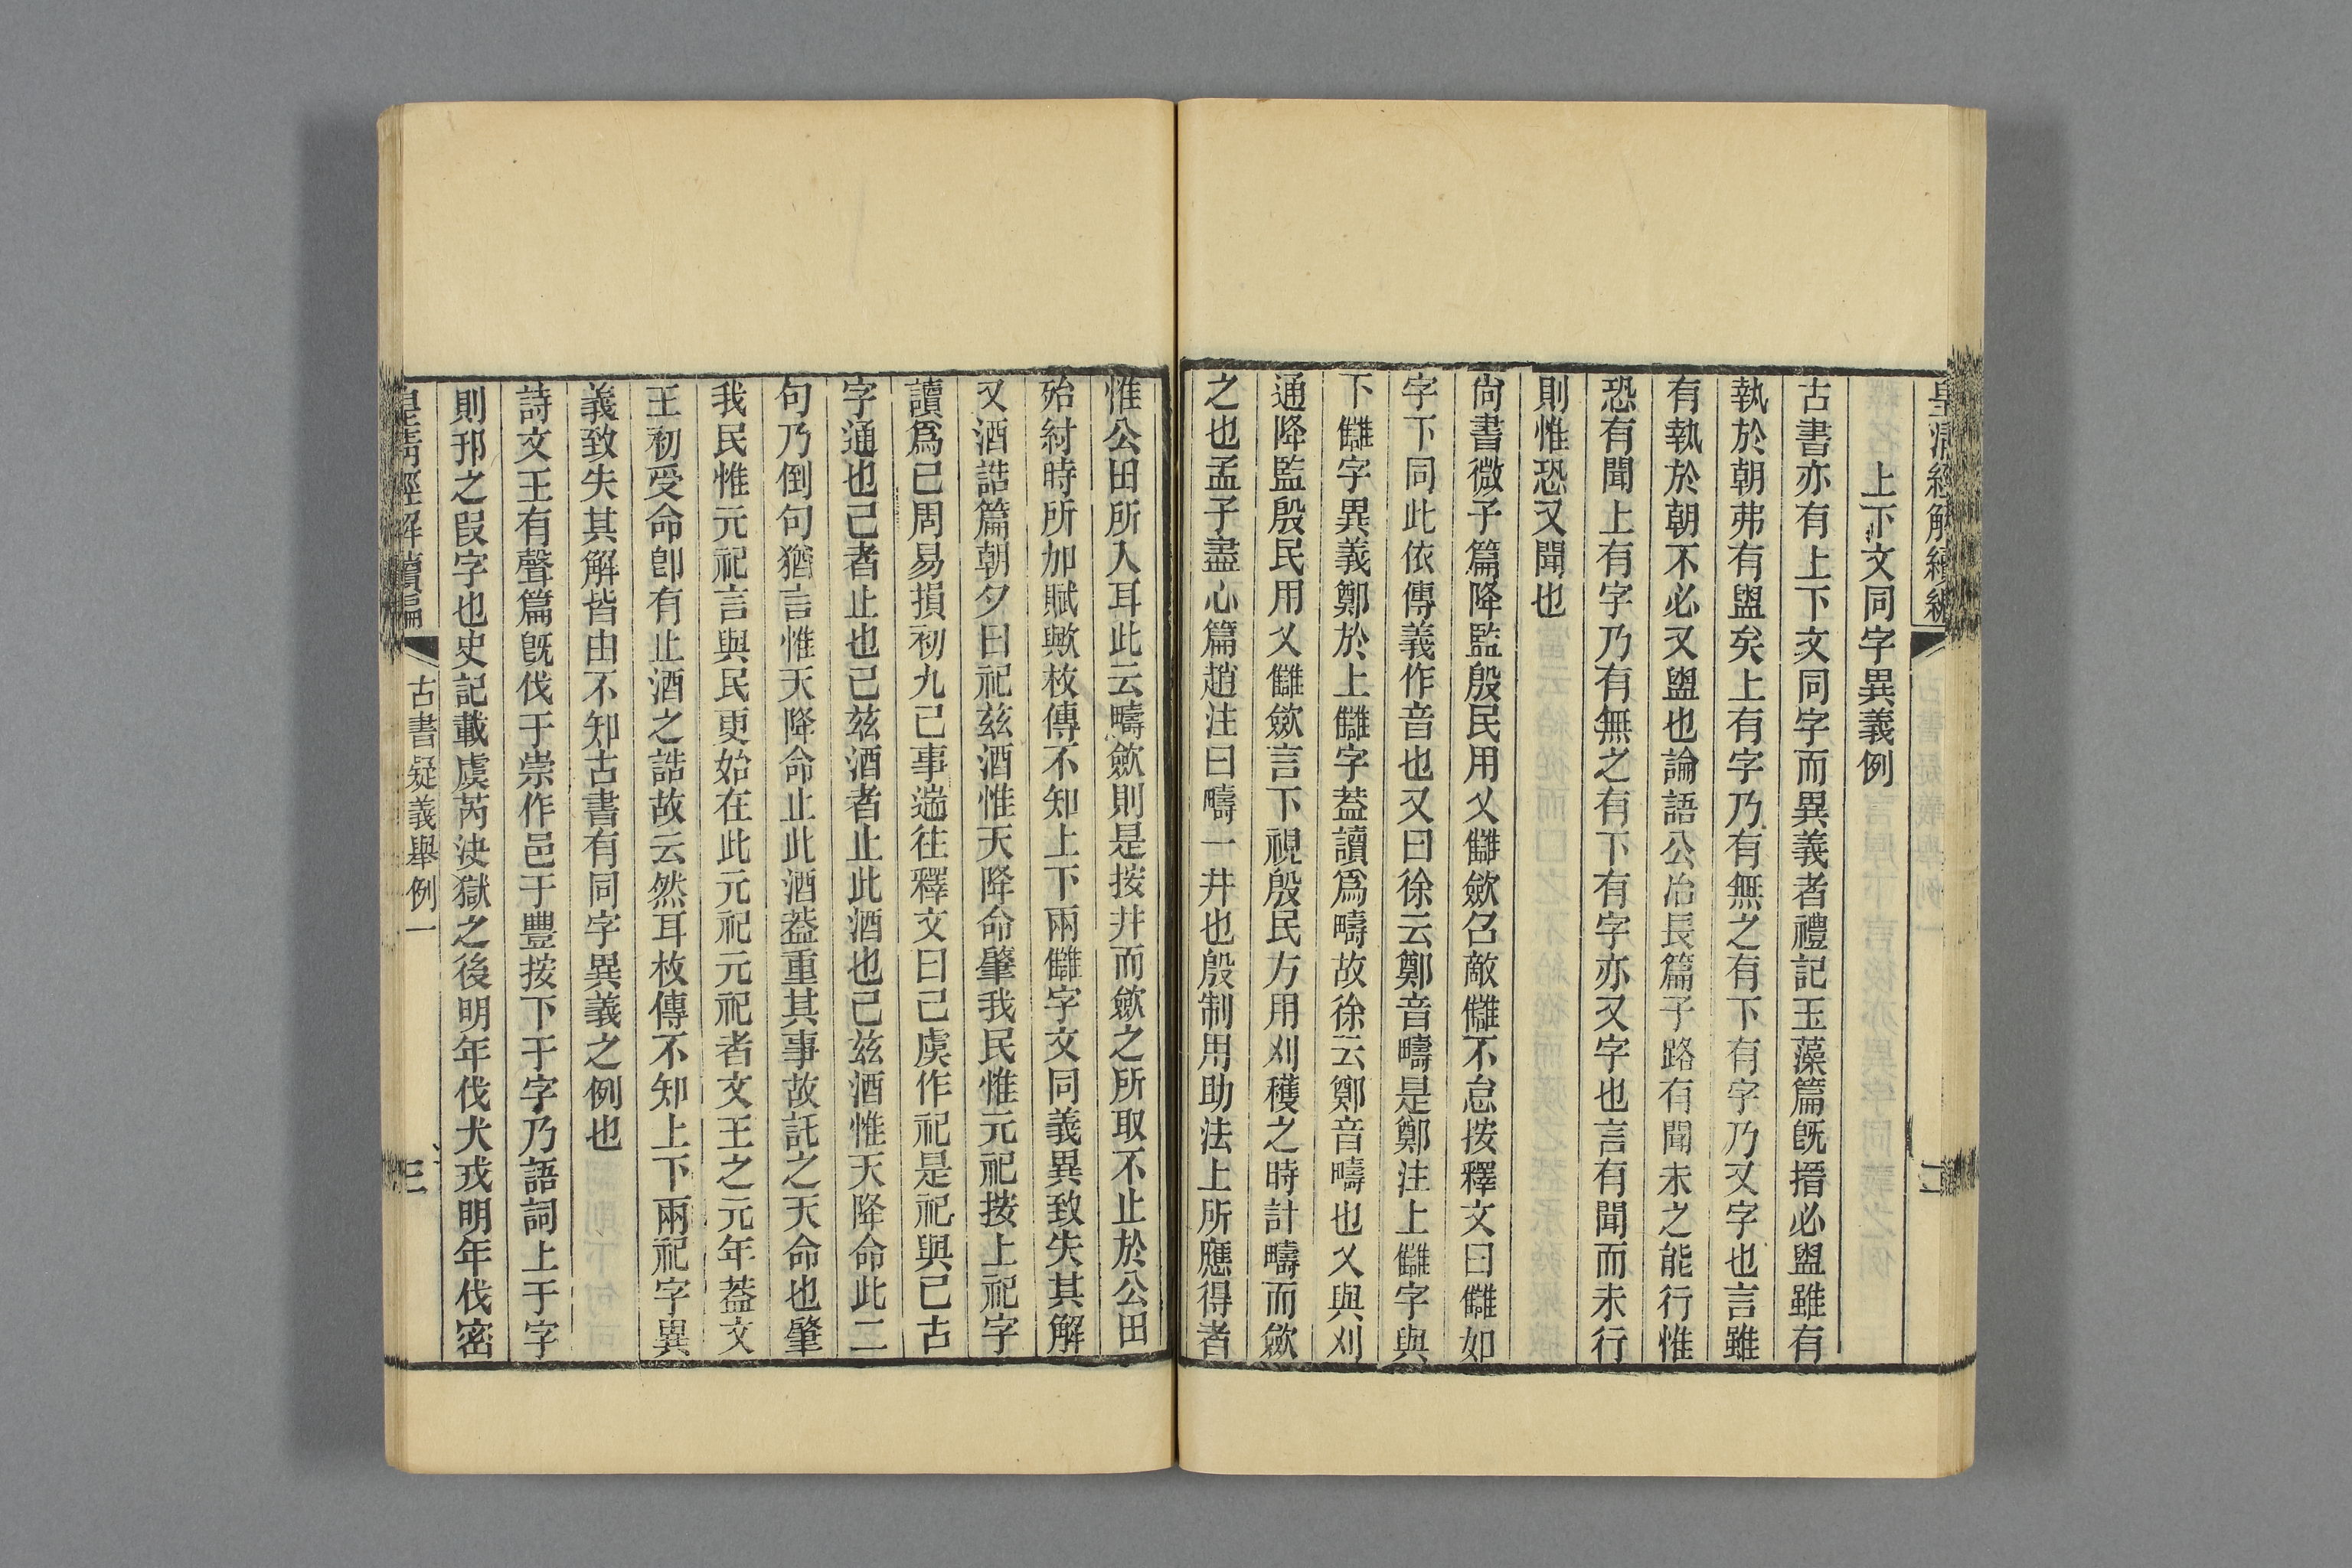 皇清經解續編
二
上下文同字異義例
古書亦有上下文同字而異義者禮記玉藻篇旣搢必盥雖有
執於朝弗有盥矣上有字乃有無之有下有字乃又字也言雖
有執於朝不必又盥也論語公冶長篇子路有聞未之能行惟
恐有聞上有字乃有無之有下有字亦又字也言有聞而未行
則惟恐又聞也
尙書微子篇降監殷民用乂讎斂召敵讎不怠按釋文曰讎如
字下同此依傳義作音也又曰徐云鄭音疇是鄭注上讎字與
下讎字異義鄭於上讎字葢讀爲疇故徐云鄭音疇也乂與刈
通降監殷民用乂讎斂言下視殷民方用刈穫之時計疇而斂
之也孟子盡心篇趙注曰疇一井也殷制用助法上所應得者
惟公田所入耳此云疇斂則是按井而斂之所取不止於公田
殆紂時所加賦歟枚傳不知上下兩讎字文同義異致失其解
又酒誥篇朝夕曰祀兹酒惟天降命肇我民惟元祀按上祀字
讀爲已周易損初九已事遄往釋文曰已虞作祀是祀與已古
字通也已者止也已兹酒者止此酒也已兹酒惟天降命此二
句乃倒句猶言惟天降命止此酒葢重其事故託之天命也肇
我民惟元祀言與民更始在此元祀元祀者文王之元年葢文
王初受命卽有止酒之誥故云然耳枚傳不知上下兩祀字異
義致失其解皆由不知古書有同字異義之例也
詩文王有聲篇旣伐于崇作邑于豐按下于字乃語詞上于字
則邘之叚字也史記載虞芮決獄之後明年伐犬戎明年伐密
皇清經解續編
古書疑義舉例一
三